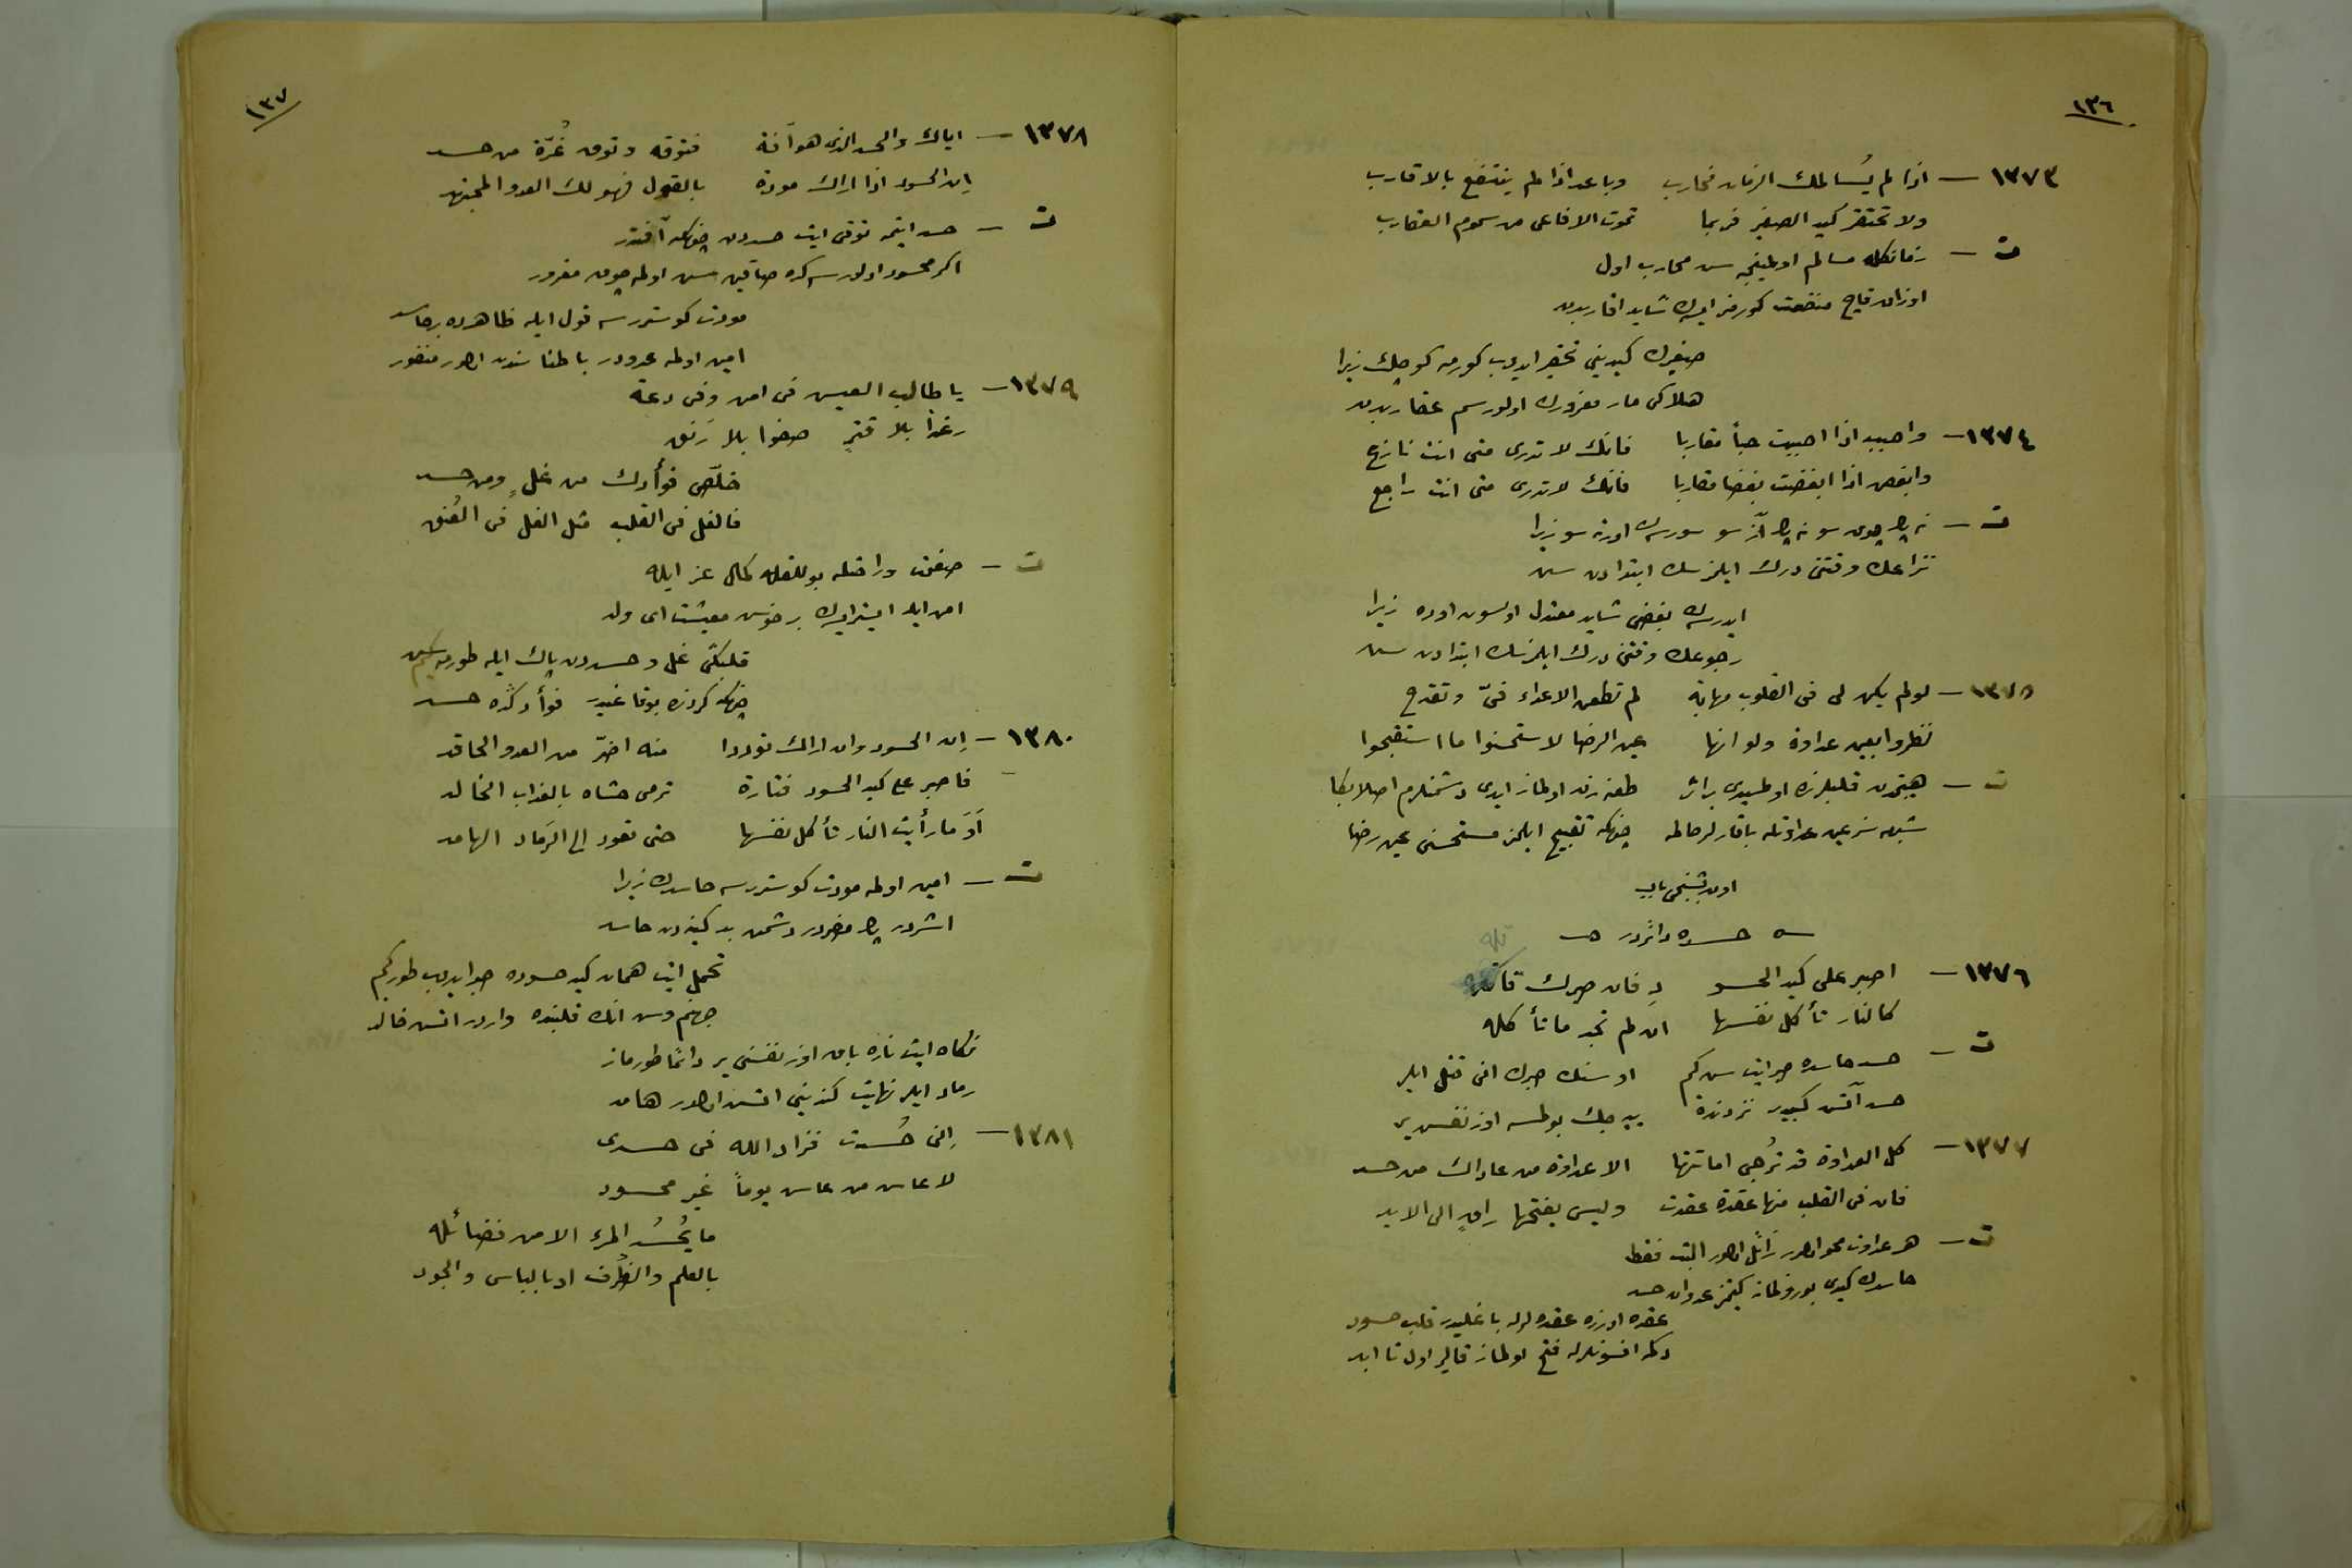 ١٣٦
١٣٧٣ — اذا لم يُسالمك الزمان فحارب    وباعد اذا لم ينتفع بالاقارب
ولا تحتقر كيد الصغير فربما    تموت الافاعى من سموم العقارب
ت — زمانكله مسالم اولمينجه سن محارب اول
اوزاق قاچ منفعت كورمز ايسه ك شايد اقاربدن
صغيرك كيدينى تحقير ايدوب كورمه كوچك زيرا
هلاكى مار مغرورك اولور سم عقاربدن
١٣٧٤ — واحبب اذا احببت حباً مقاربا    فانك لا تدرى متى انت نازع
وابغض اذا ابغضت بغضا مقاربا    فانك لا تدرى متى انت راجع
ت — نه پك چوق سو نه پك آز سو سورسه ك اورته سو زيرا
نزاعك وقتنى درك ايلمزسك ابتدادن سن
ايدرسه ك بغضى شايد معتدل اولسون اوده زيرا
رجوعك وقتنى درك ايلمزسك ابتدادن سن
١٣٧٥ — لو لم يكن لى فى القلوب مهابة    لم تطعن الاعداء فىّ وتقدح
نظروا بعين عداوة ولو انها    عين الرضا لاستحسنوا ما استقبحوا
ت — هيبتمدن قلبلرنده اولمسيدى بر اثر    طعنه زن اولماز ايدى دشمنلرم اصلا بكا
شبهه سز عين عداوتله باقارلر حالمه    چونكه تقبيح ايلمز مستحسنى عين رضا
اون بشنجى باب
حسده دائردر
١٣٧٦ — اصبر على كيد الحسو    دِ فان صبرك قاتله
كالنار تأكل نفسها    ان لم تجد ما تأكله
ت — حسد حاسده صبر ايت سن كم    او سنك صبرك انى قتل ايلر
حسد آتش كبيدر نزدنده    ييه جك بولمسه اوز نفسن ير
١٣٧٧ — كل العداوة قد تُرجى اماتتها    الا عداوة من عاداك من حسد
فان فى القلب منها عقدة عقدت    وليس يفتحها راقٍ الى الابد
ت — هر عداوت محو اولور زائل اولور البت فقط
حاسدك كيدى بوزولماز كيتمز عدوان حسد
عقده اوزره عقده لرله باغليدر قلب حسود
دكمه افسونلرله فتح اولماز قالير اول تا ابد
١٣٧
١٣٧٨ — اياك والحسد الذى هو آفة    فتوقه وتوق غُرّة من حسد
إن الحسود اذا اراك مودة    بالقول فهو لك العدو المجتهد
ت — حسد ايتمه توقى ايت حسددن چونكه آفتدر
اكر محسود اولورسه ك ده صاقين سن اولمه چوق مغرور
مودت كوسترسه قول ايله ظاهرده بر حاسد
امين اولمه عدودر باطنا سندن اولور منفور
١٣٧٩ — يا طالب العيش فى امن وفى دعة
رغداً بلا قترٍ    صفوا بلا رَنَق
خلّص فؤادك من غلٍ ومن حسد
فالغل فى القلب مثل الغل فى العُنق
ت — صفوت وراحتله بوللقله كمال عز ايله
امن ايله ايسترايسه ك بر خوش معيشت اى ولد
قلبكى غل و حسددن پاك ايله طورمه
چونكه كردنده بوقاغيدر فؤادكده حسد
١٣٨٠ — إن الحسود وان اراك توددا    منه اضرّ من العدو الحاقد
فاصبر على كيد الحسود فتارة    ترمى حشاه بالعذاب الخالد
أوَ ما رأيت النار تأكل نفسها    حتى تعود الى الرَماد الهامد
ت — امين اولمه مودت كوسترسه حاسدك زيرا
اشددر پك مضردر دشمن بد كينه دن حاسد
تحمل ايت همان كيد حسوده صبر ايدوب طور كيم
جهنم وش انك قلبنده واردر اتش خالد
نكاه ايت ناره باق اوز نفسنى ير دائما طورماز
رماد ايلر نهايت كندينى اتش اولور هامد
١٣٨١ — إنى حُسدت فزاد الله فى حسدى
لا عاش من عاش يوماً غير محسود
ما يُحسُد المرء الا من فضائله
بالعلم والظُرف او بالباس والجود